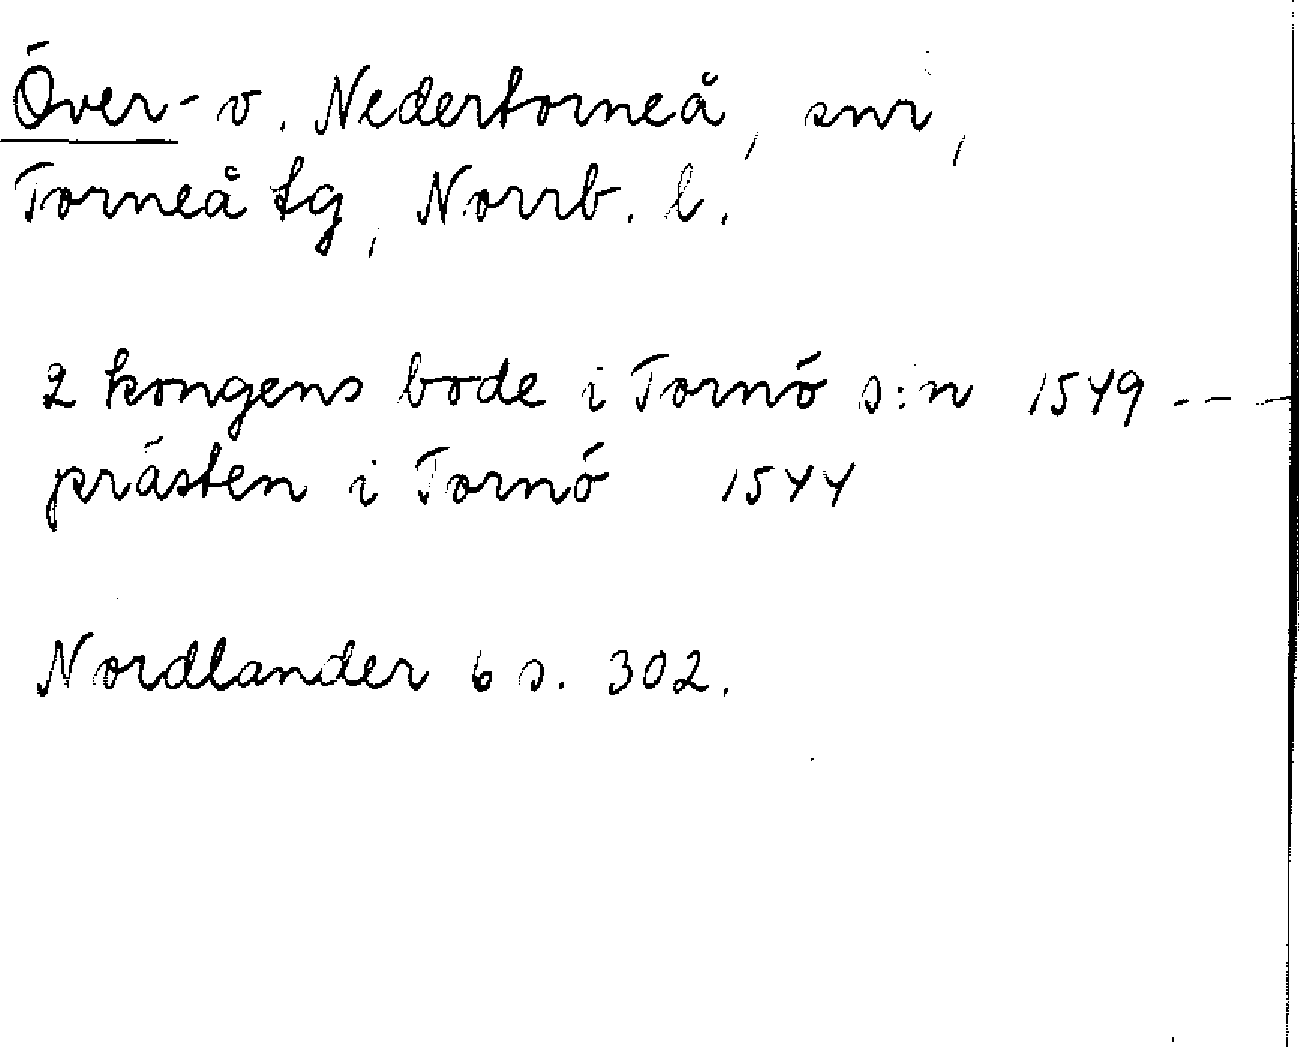 Över- o. Nedertorneå, snr,
Torneå tg, Norrb. l.
2 kongens bode i Tornö s:n 1549 ---
prästen i Tornö 1544
Nordlander 6 s. 302.